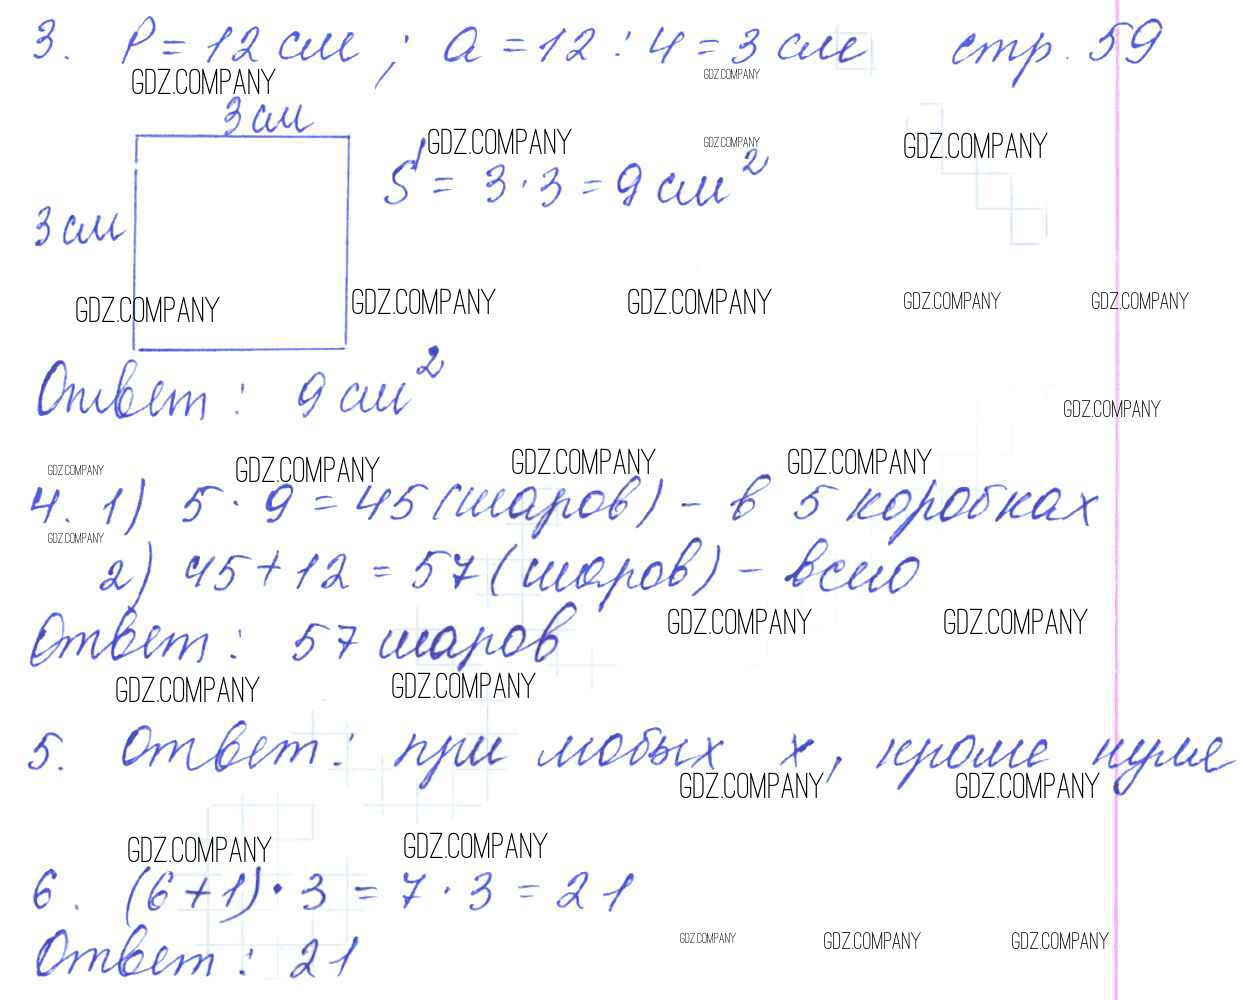 3. P = 12 см ; a = 12 : 4 = 3 см стр. 59
GDZ.COMPANY GDZ.COMPANY
3 см
GDZ.COMPANY GDZ.COMPANY GDZ.COMPANY
S = 3 · 3 = 9 см²
3 см
GDZ.COMPANY GDZ.COMPANY GDZ.COMPANY GDZ.COMPANY GDZ.COMPANY
Ответ : 9 см²
GDZ.COMPANY
GDZ.COMPANY GDZ.COMPANY GDZ.COMPANY GDZ.COMPANY
4. 1) 5 · 9 = 45 (шаров) – в 5 коробках
GDZ.COMPANY
2) 45 + 12 = 57 (шаров) – всего
GDZ.COMPANY GDZ.COMPANY
Ответ : 57 шаров
GDZ.COMPANY GDZ.COMPANY
5. Ответ : при любых х, кроме нуля
GDZ.COMPANY GDZ.COMPANY
GDZ.COMPANY GDZ.COMPANY
6. (6 + 1) · 3 = 7 · 3 = 21
GDZ.COMPANY GDZ.COMPANY GDZ.COMPANY
Ответ : 21